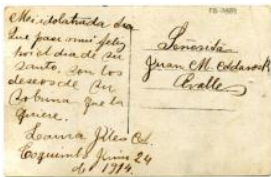 Mi idolatrada tia
Que pase mui feliz
hoi el dia de su
santo. son los
deseos de su
sobrina que la
quiere.
Laura
Coquimbo Junio 24
de 1914.
Señorita
Juan M.
Ovalle